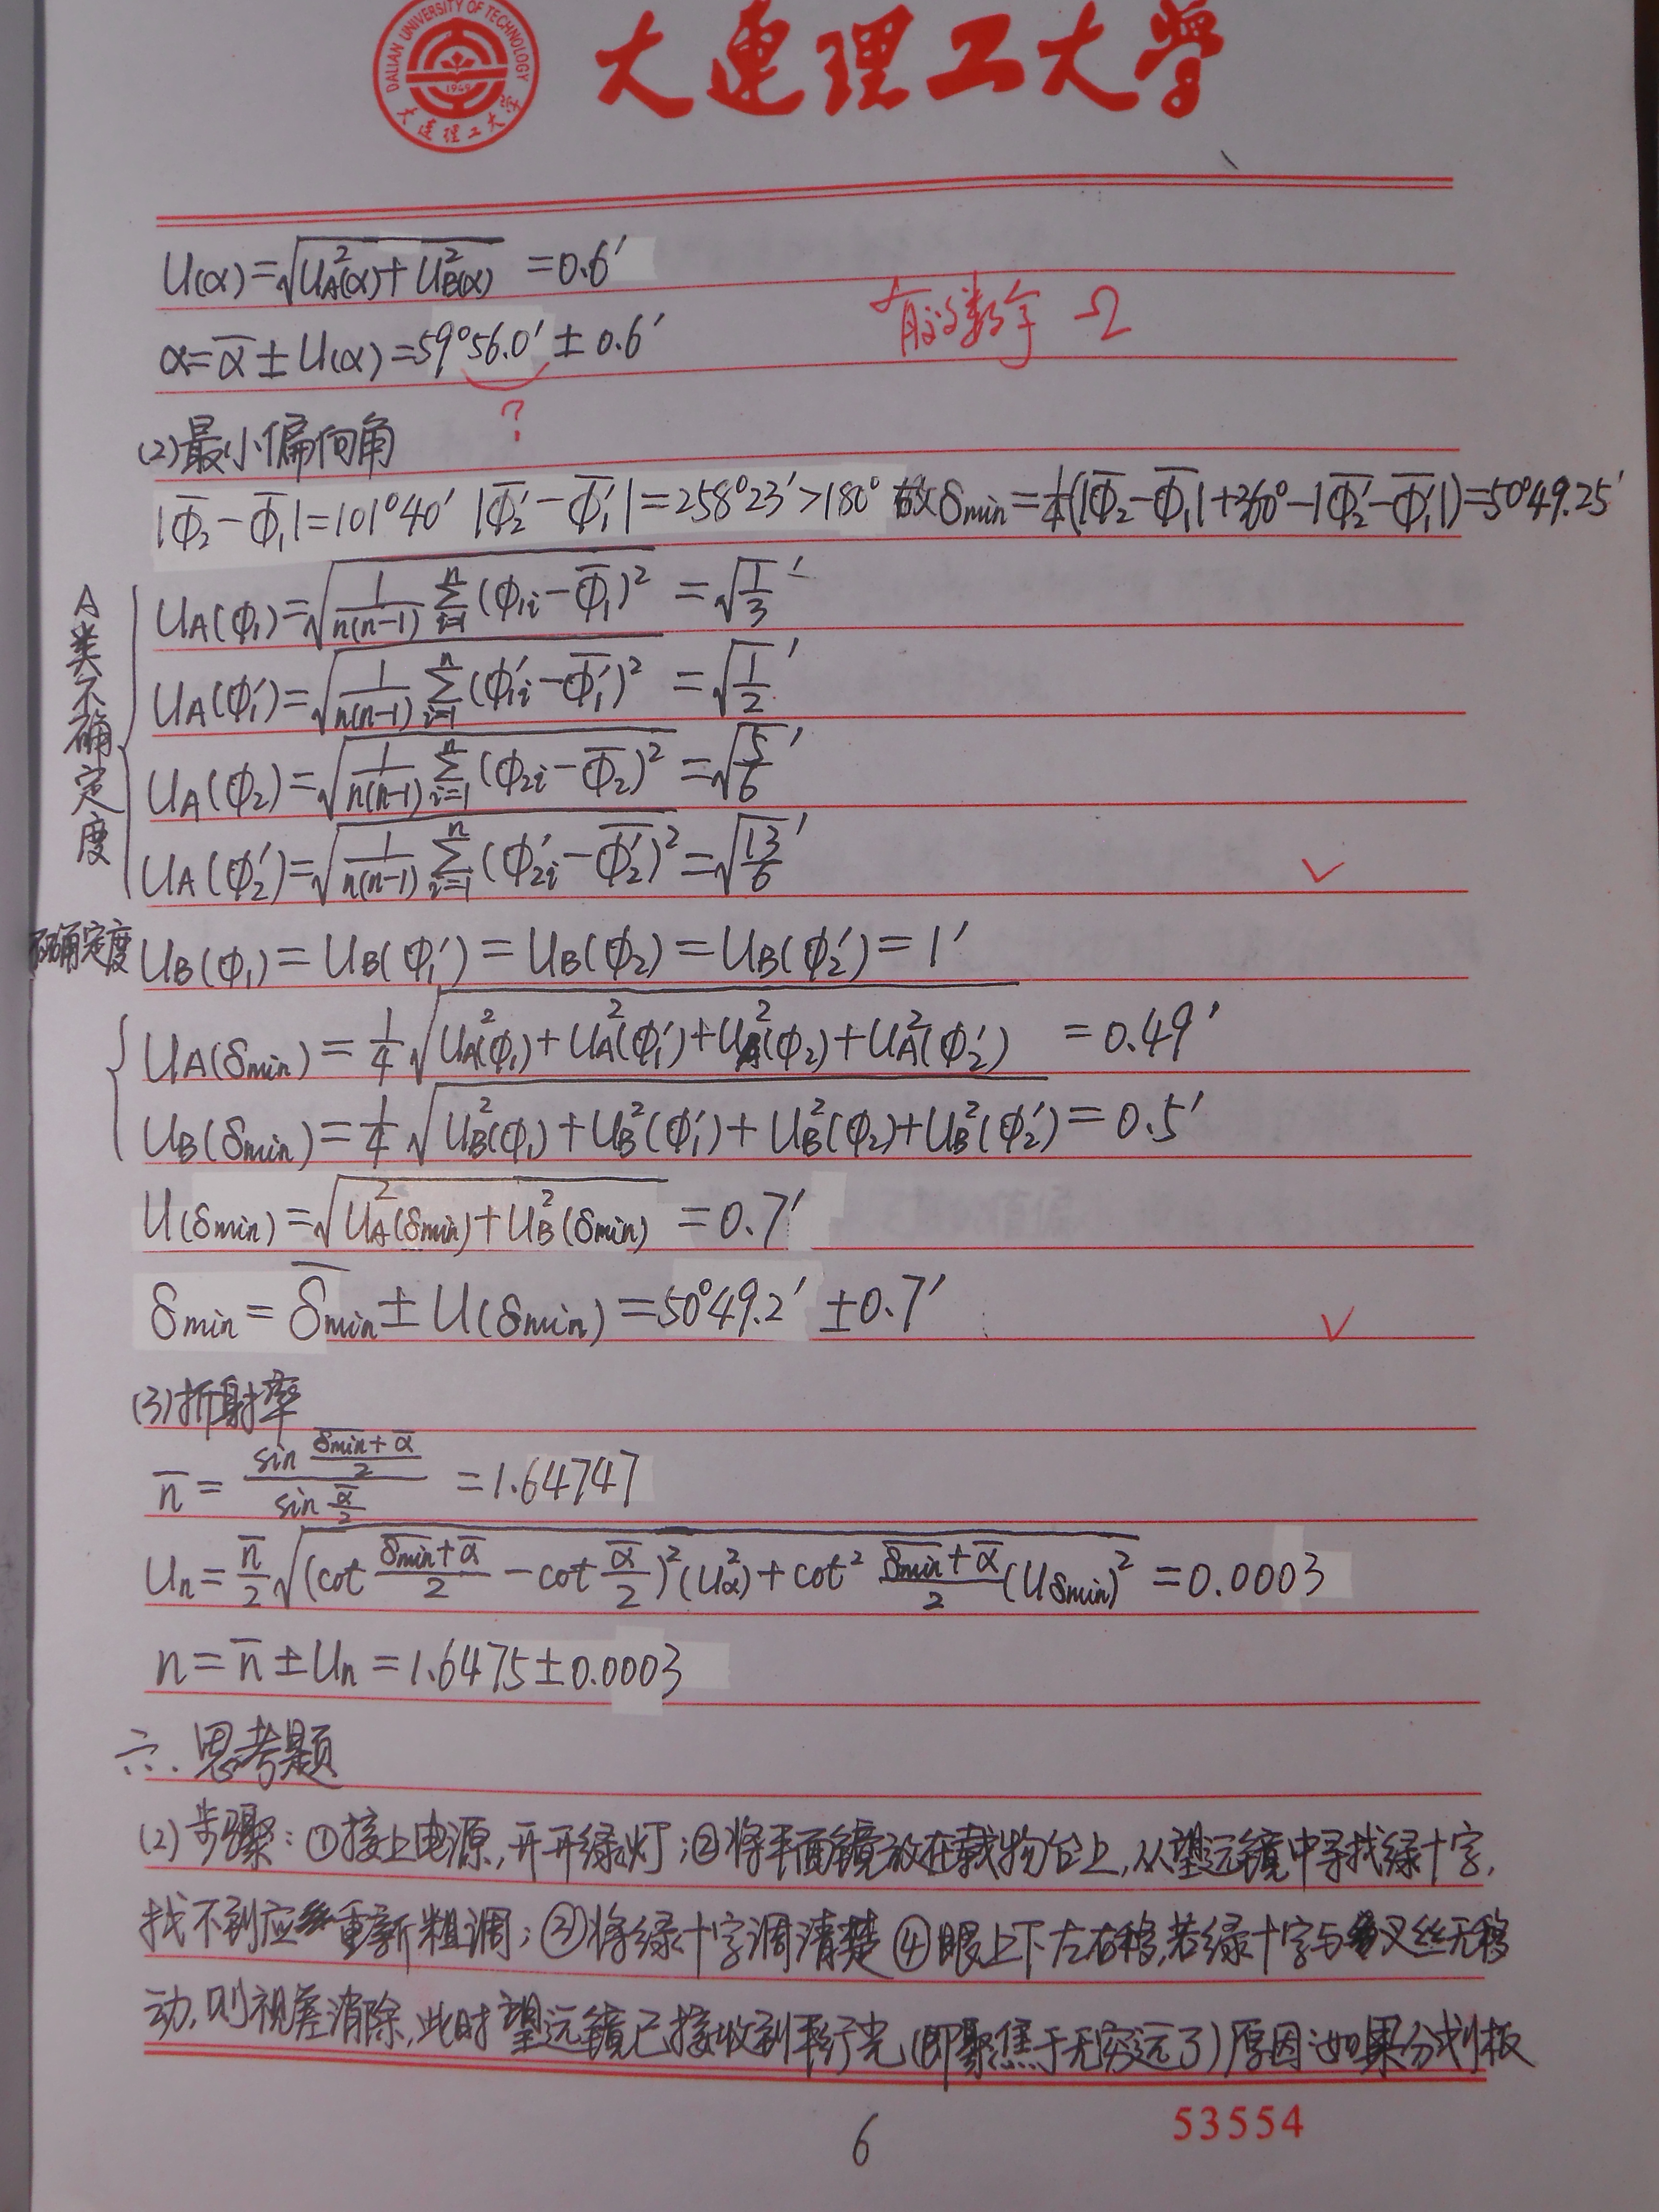 DALIAN UNIVERSITY OF TECHNOLOGY
1949
大连理工大学
大连理工大学
U(α)=√(U_A²(α)+U_B²(α)) =0.6′
有效数字 -2
α=ᾱ±U(α)=59°56.0′±0.6′
?
(2)最小偏向角
|Φ̄₂-Φ̄₁|=101°40′ |Φ̄₂′-Φ̄₁′|=258°23′>180° 故δmin=¼(|Φ̄₂-Φ̄₁|+360°-|Φ̄₂′-Φ̄₁′|)=50°49.25′
A类不确定度
U_A(Φ₁)=√(1/(n(n-1)) Σ_{i=1}^{n}(Φ₁ᵢ-Φ̄₁)²) =√(1/3)′
U_A(Φ₁′)=√(1/(n(n-1)) Σ_{i=1}^{n}(Φ₁ᵢ′-Φ̄₁′)²) =√(1/2)′
U_A(Φ₂)=√(1/(n(n-1)) Σ_{i=1}^{n}(Φ₂ᵢ-Φ̄₂)²) =√(5/6)′
U_A(Φ₂′)=√(1/(n(n-1)) Σ_{i=1}^{n}(Φ₂ᵢ′-Φ̄₂′)²) =√(13/6)′
不确定度 U_B(Φ₁)=U_B(Φ₁′)=U_B(Φ₂)=U_B(Φ₂′)=1′
U_A(δmin)=¼√(U_A²(Φ₁)+U_A²(Φ₁′)+U_A²(Φ₂)+U_A²(Φ₂′)) =0.49′
U_B(δmin)=¼√(U_B²(Φ₁)+U_B²(Φ₁′)+U_B²(Φ₂)+U_B²(Φ₂′)) =0.5′
U(δmin)=√(U_A²(δmin)+U_B²(δmin)) =0.7′
δmin=δ̄min±U(δmin)=50°49.2′±0.7′
(3)折射率
n̄=sin((δ̄min+ᾱ)/2)/sin(ᾱ/2) =1.64747
Un=n̄/2 √((cot (δ̄min+ᾱ)/2 -cot ᾱ/2)²(Uα²)+cot² (δ̄min+ᾱ)/2 (Uδmin)²) =0.0003
n=n̄±Un=1.6475±0.0003
六.思考题
(2)步骤:①接上电源,开开绿灯;②将平面镜放在载物台上,从望远镜中寻找绿十字,
找不到应重新粗调;③将绿十字调清楚④眼上下左右移,若绿十字与叉丝无移
动,则视差消除,此时望远镜已接收到平行光(即聚焦于无穷远了)原因:如果分划板
6
53554